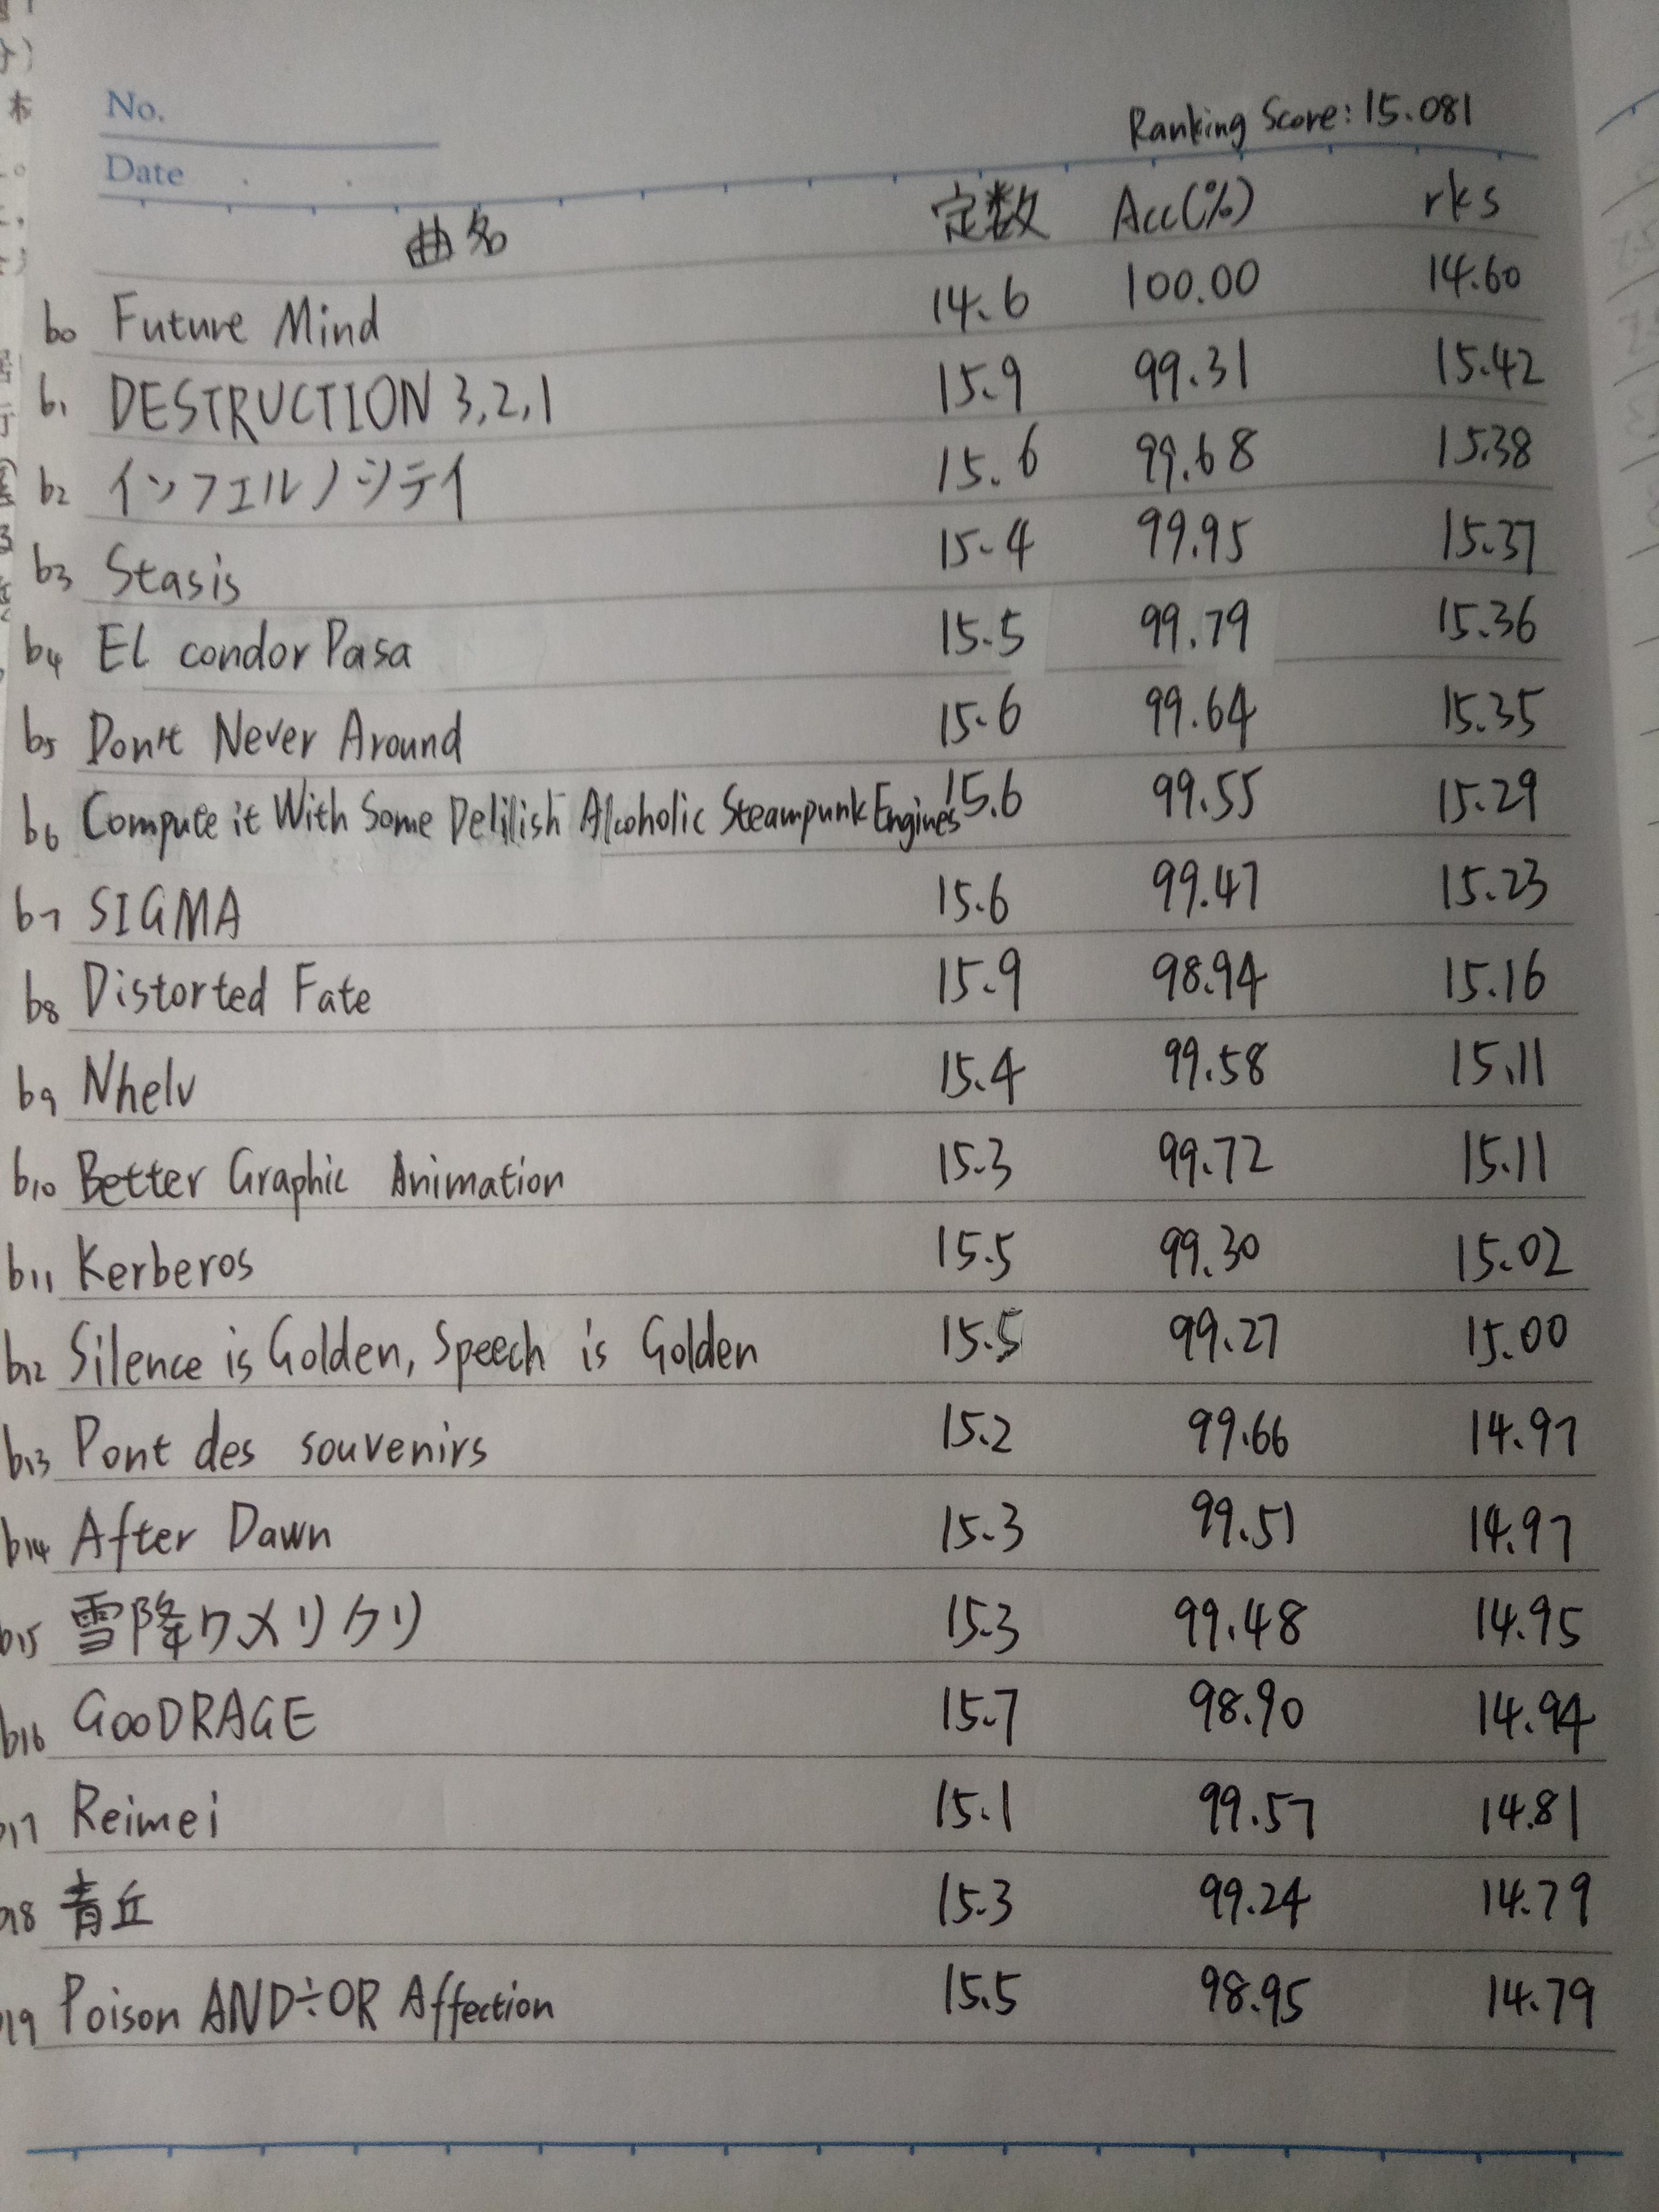 No.
Ranking Score: 15.081
Date
曲名 定数 Acc(%) rks
b0 Future Mind 14.6 100.00 14.60
b1 DESTRUCTION 3,2,1 15.9 99.31 15.42
b2 インフェルノシティ 15.6 99.68 15.38
b3 Stasis 15.4 99.95 15.37
b4 El condor Pasa 15.5 99.79 15.36
b5 Don't Never Around 15.6 99.64 15.35
b6 Compute it With Some Delilish Alcoholic Steampunk Engines 15.6 99.55 15.29
b7 SIGMA 15.6 99.47 15.23
b8 Distorted Fate 15.9 98.94 15.16
b9 Nhelv 15.4 99.58 15.11
b10 Better Graphic Animation 15.3 99.72 15.11
b11 Kerberos 15.5 99.30 15.02
b12 Silence is Golden, Speech is Golden 15.5 99.27 15.00
b13 Pont des souvenirs 15.2 99.66 14.97
b14 After Dawn 15.3 99.51 14.97
b15 雪降りメリクリ 15.3 99.48 14.95
b16 GOODRAGE 15.7 98.90 14.94
b17 Reimei 15.1 99.57 14.81
b18 青丘 15.3 99.24 14.79
b19 Poison AND÷OR Affection 15.5 98.95 14.79